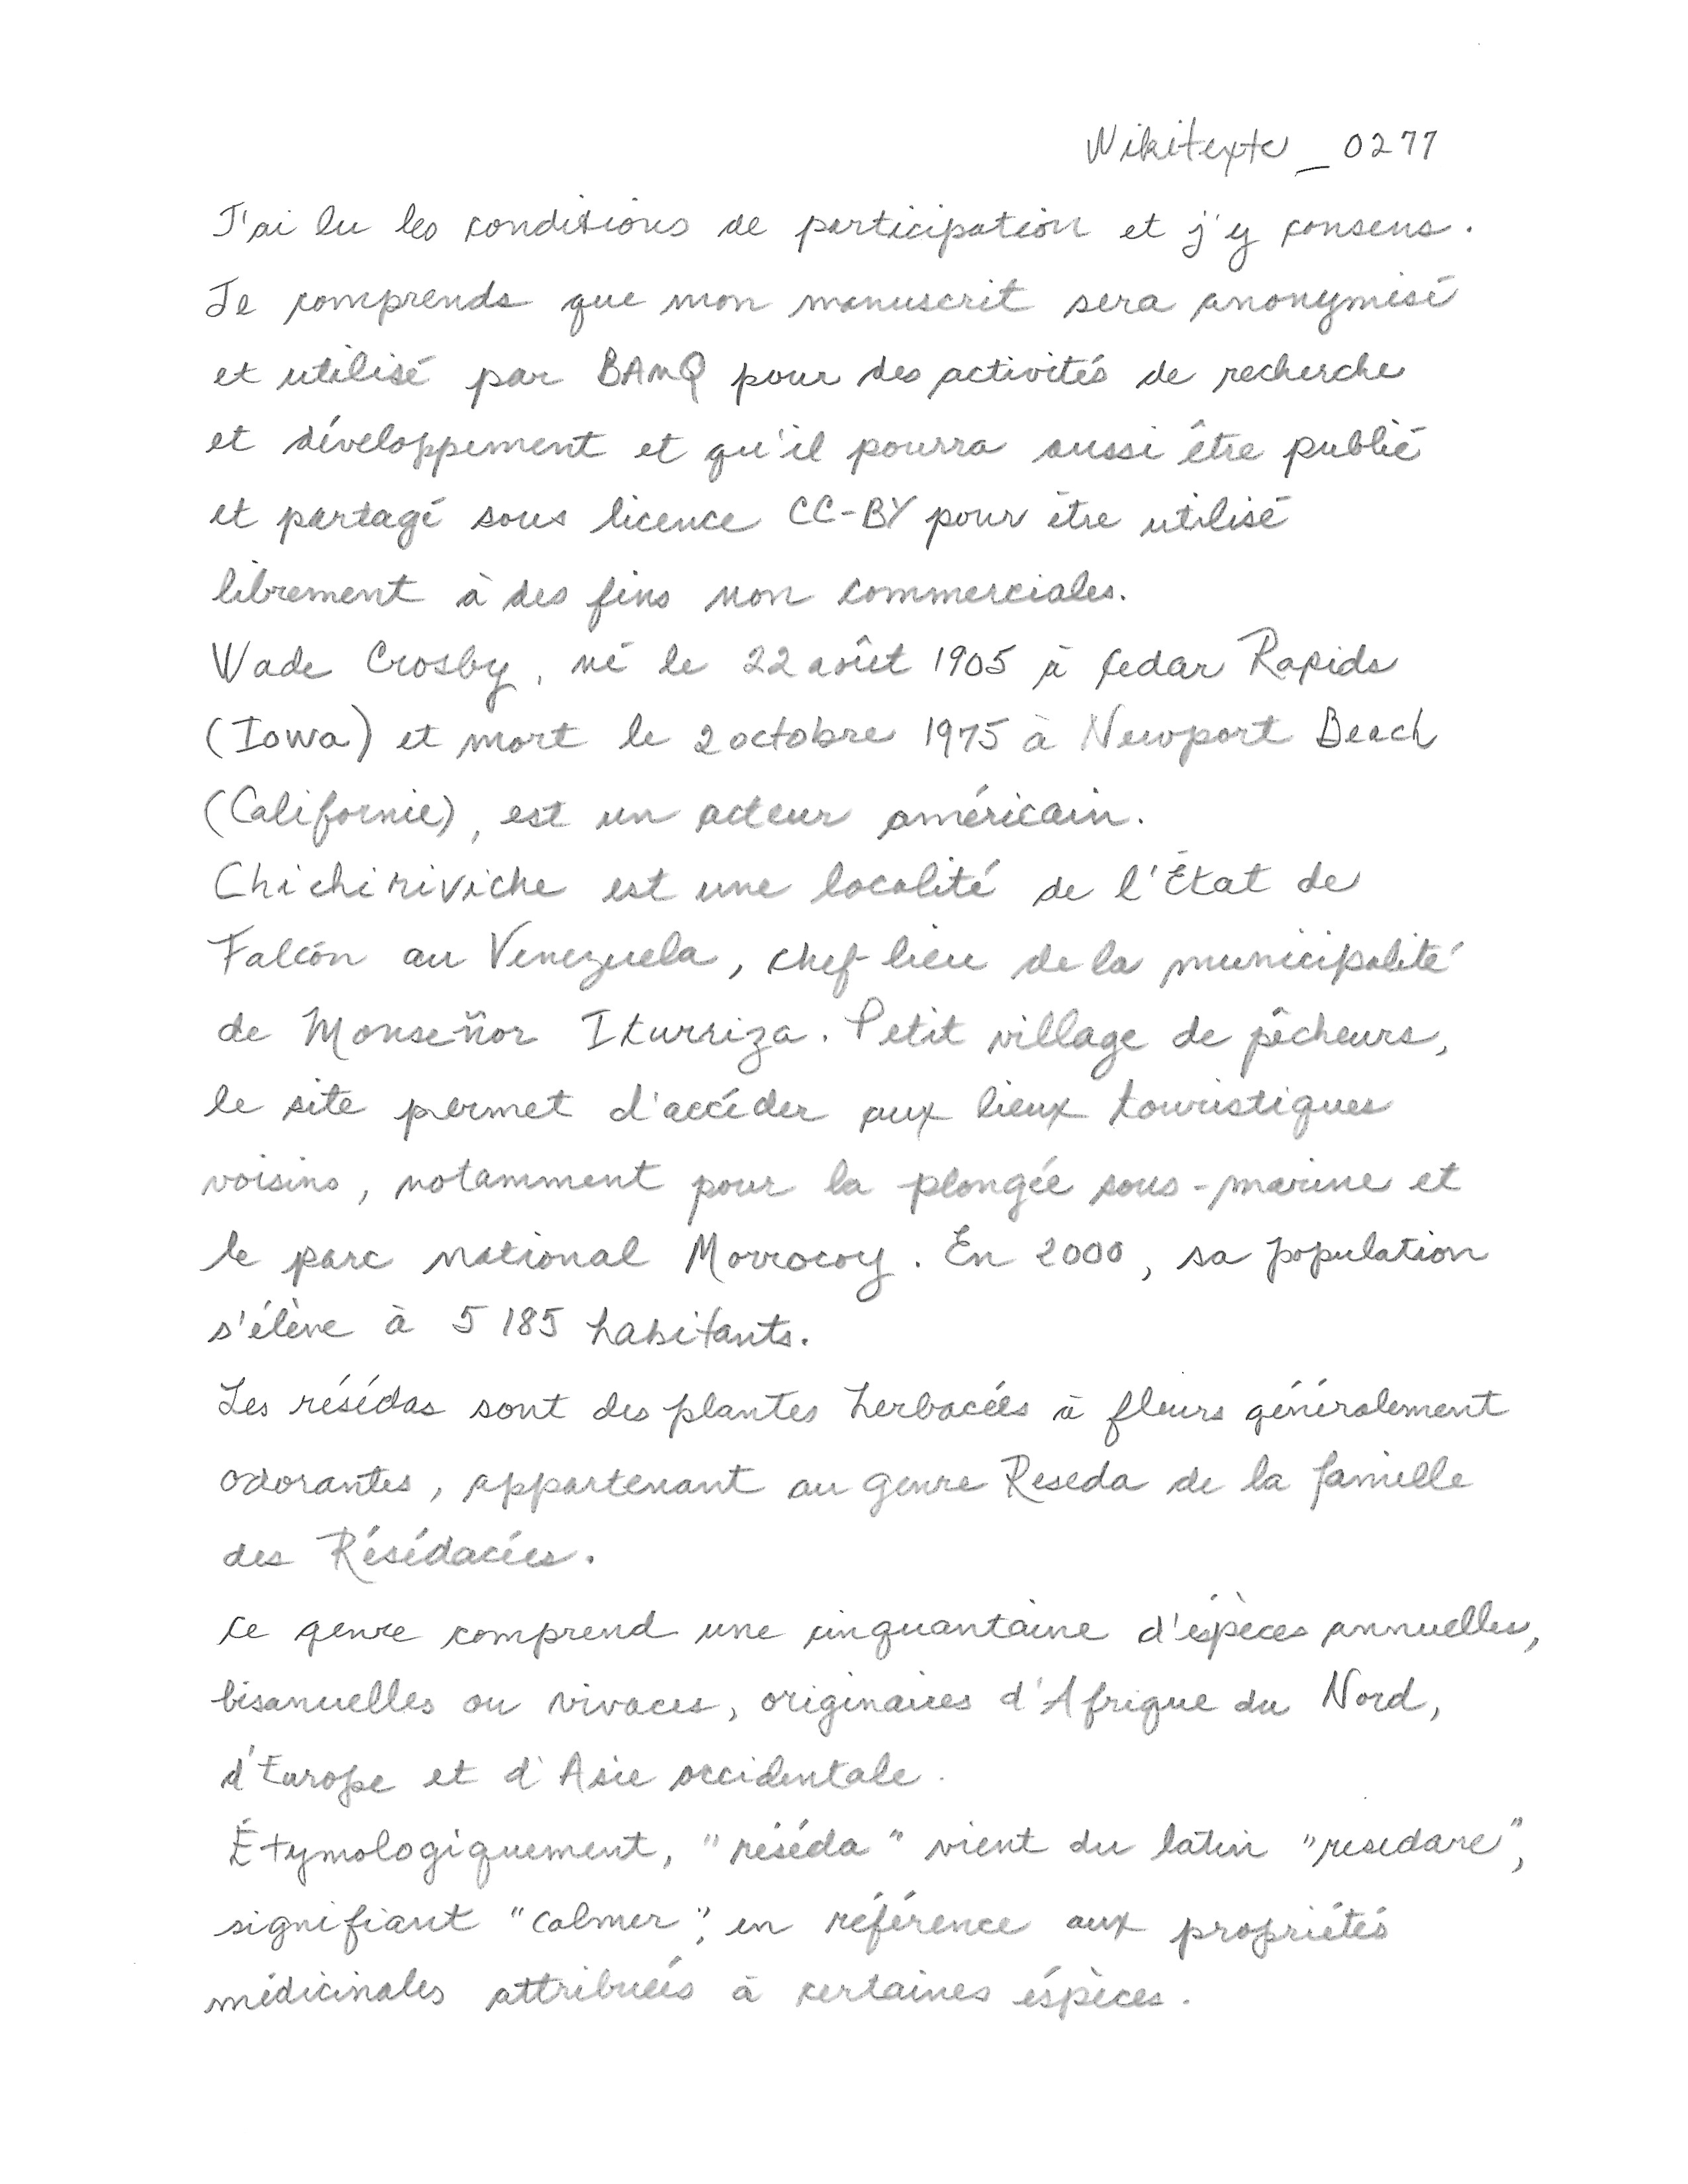 Wikitexte_0277
J'ai lu les conditions de participation et j'y consens.
Je comprends que mon manuscrit sera anonymisé
et utilisé par BAnQ pour des activités de recherche
et développement et qu'il pourra aussi être publié
et partagé sous licence CC-BY pour être utilisé
librement à des fins non commerciales.
Wade Crosby, né le 22 août 1905 à Cedar Rapids
(Iowa) et mort le 2 octobre 1975 à Newport Beach
(Californie), est un acteur américain.
Chichiriviche est une localité de l'État de
Falcón au Venezuela, chef lieu de la municipalité
de Monseñor Iturriza. Petit village de pêcheurs,
le site permet d'accéder aux lieux touristiques
voisins, notamment pour la plongée sous-marine et
le parc national Morrocoy. En 2000, sa population
s'élève à 5 185 habitants.
Les résédas sont des plantes herbacées à fleurs généralement
odorantes, appartenant au genre Reseda de la famille
des Résédacées.
Ce genre comprend une cinquantaine d'éspèces annuelles,
bisanuelles ou vivaces, originaires d'Afrique du Nord,
d'Europe et d'Asie occidentale.
Étymologiquement, "réséda" vient du latin "resedare",
signifiant "calmer", en référence aux propriétés
médicinales attribuées à certaines éspèces.